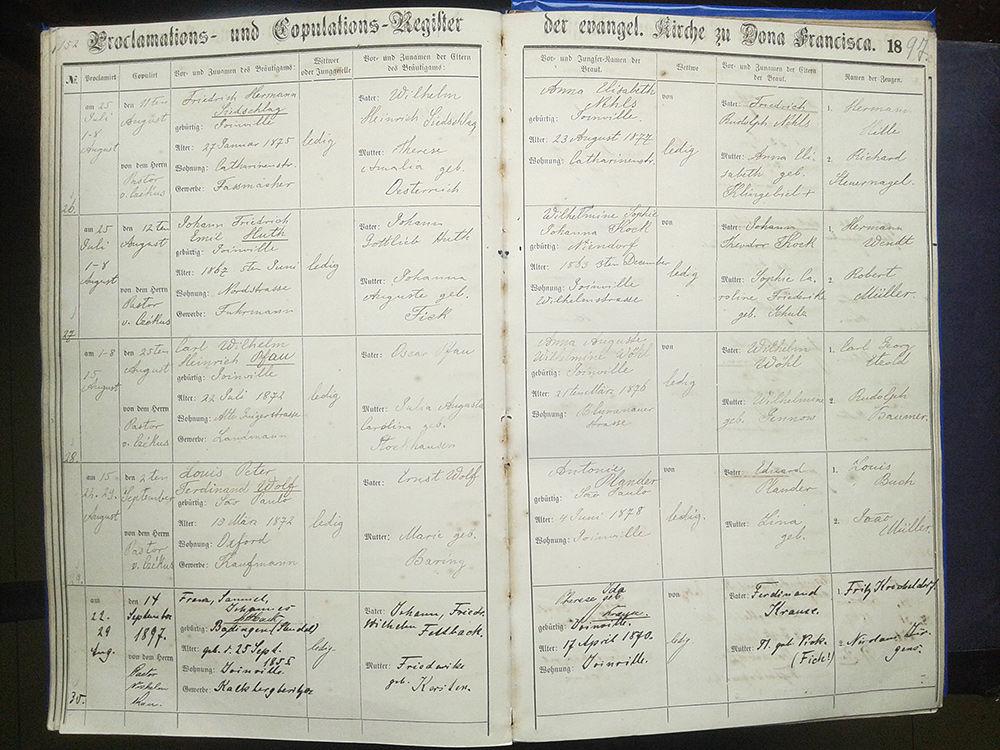 152
Proclamations- und Copulations-Register der evangel. Kirche zu Dona Francisca. 1897.
№ Proclamirt Copulirt Vor- und Zunamen des Bräutigams: Wittwer oder Junggeselle Vor- und Zunamen der Eltern des Bräutigams: Vor- und Jungfer-Namen der Braut. Wittwe Vor- und Zunamen der Eltern der Braut. Namen der Zeugen.
26.
am 25
Juli
1-8
August
den 11ten
August
von dem Herrn
Pastor
Friedrich Hermann
Siedschlag
gebürtig: Joinville
Alter: 27 Januar 1875
Wohnung: Catharinenstr.
Gewerbe: Fassmacher
ledig
Vater: Wilhelm
Heinrich Siedschlag
Mutter: Therese
Amalia geb.
Oesterreich
Anna Elisabeth
Nehls
von
gebürtig: Joinville.
Alter: 23 August 1877
Wohnung: Catharinenstr.
ledig
Vater: Friedrich
Rudolph Nehls
Mutter: Anna Eli-
sabeth geb.
Klingebiel +
1. Hermann
Hille
2. Richard
Steuernagel.
27.
am 25
Juli
1-8
August
den 12ten
August
von dem Herrn
Pastor
Johann Friedrich
Emil Huth
gebürtig: Joinville
Alter: 1867 5ten Juni
Wohnung: Nordstrasse
Gewerbe: Fuhrmann
ledig
Vater: Johann
Gottlieb Huth
Mutter: Johanna
Auguste geb.
Fick
Wilhelmine Sophie
Johanna Kock
von
gebürtig: Niendorf
Alter: 1853 3ten December
Wohnung: Joinville
Wilhelmstrasse
ledig
Vater: Johann
Theodor Kock
Mutter: Sophie Ca-
roline Friederike
geb. Schulz
1. Hermann
Wendt
2. Robert
Müller.
28.
am 1-8
15
August
den 25ten
August
von dem Herrn
Pastor
Carl Wilhelm
Heinrich Pfau
gebürtig: Joinville
Alter: 22 Juli 1872
Wohnung:
Gewerbe: Landmann
ledig
Vater: Oscar Pfau
Mutter: Julia Augusta
Carolina geb.
Stockhausen
Anna Auguste
Wilhelmine Wöhl
von
gebürtig: Joinville
Alter: 21ten März 1876
Wohnung: Blumenauer
strasse
ledig
Vater: Wilhelm
Wöhl
Mutter: Wilhelmine
geb. Gennow
1. Carl Georg
2. Rudolph
Baumer.
29.
am 15
22-29.
August
den 2ten
September
von dem Herrn
Pastor
Louis Peter
Ferdinand Wolf
gebürtig: São Paulo
Alter: 19 März 1872
Wohnung: Oxford
Gewerbe: Kaufmann
ledig
Vater: Ernst Wolf
Mutter: Marie geb.
Baring
Antonie
Plander
von
gebürtig: São Paulo
Alter: 4 Juni 1878
Wohnung: Joinville
ledig.
Vater: Eduard
Plander
Mutter: Lina
geb.
1. Louis
Buch
2. João
Müller
30.
am
22.
29
Aug.
den 14
September
1897.
von dem Herrn
Pastor
Franz, Samuel,
Johannes
Feldback
gebürtig: Badingen (Stendal)
Alter: geb. d. 25 Sept.
1855
Wohnung: Joinville.
Gewerbe:
ledig
Vater: Johann, Friedr.
Wilhelm Feldback.
Mutter: Friederike
geb. Kersten.
Therese Ida
geb
Krause.
von
gebürtig: Joinville.
Alter: 17 April 1870.
Wohnung: Joinville.
ledig
Vater: Ferdinand
Krause.
Mutter:
(Fick!)
1.
2.